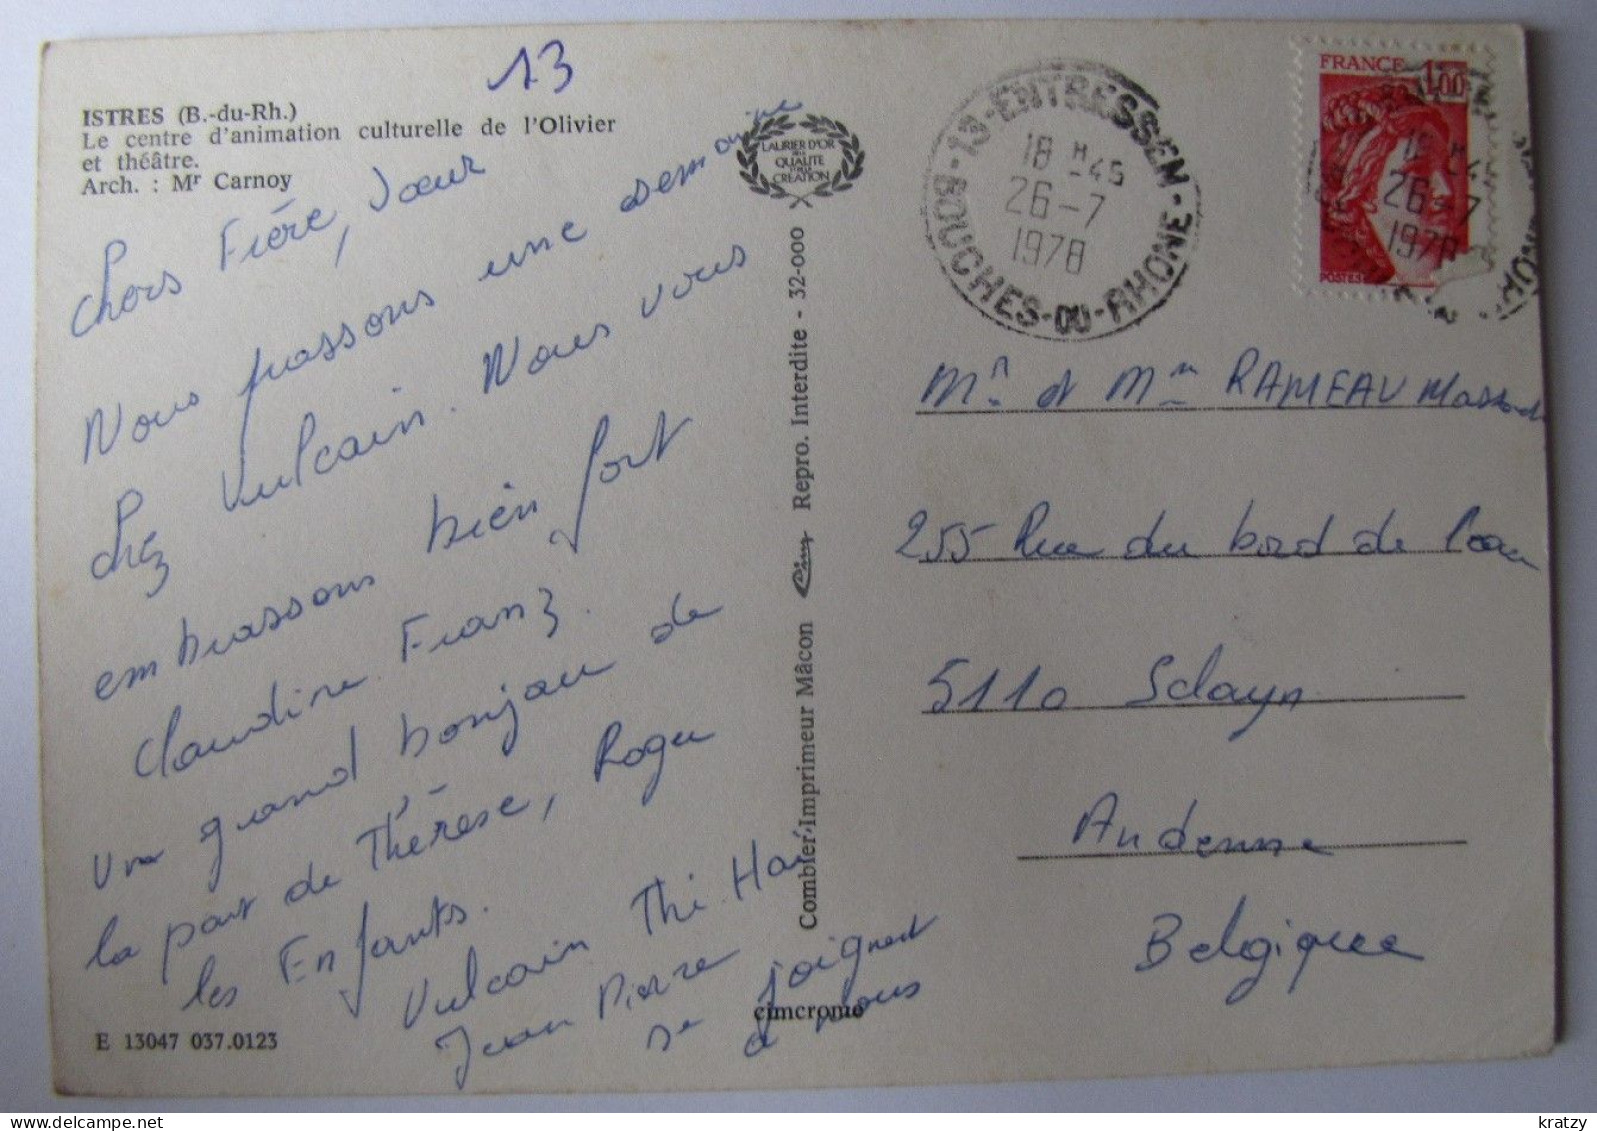 13
ISTRES (B.-du-Rh.)
Le centre d'animation culturelle de l'Olivier
et théâtre.
Arch. : Mr Carnoy
Chers Frère, Sœur
Nous passons une semaine
chez Vulcain. Nous vous
embrassons bien fort
Claudine Franz.
Un grand bonjour de
la part de Thérèse, Roger
les Enfants.
Vulcain Thi Hai
Jean Pierre
se joignent
à nous
E 13047 037.0123
cimcrome
LAURIER D'OR
DE LA
QUALITE
CREATION
Combier Imprimeur Mâcon Cim Repro. Interdite - 32-000
13-ENTRESSEN-
BOUCHES-DU-RHONE
18 H 45
26-7
1978
FRANCE 1,00
POSTES
26-7
1978
Mr et Mme RAMEAU
255 Rue du bord de l'eau
5110 Sclayn
Andenne
Belgique
kratzy